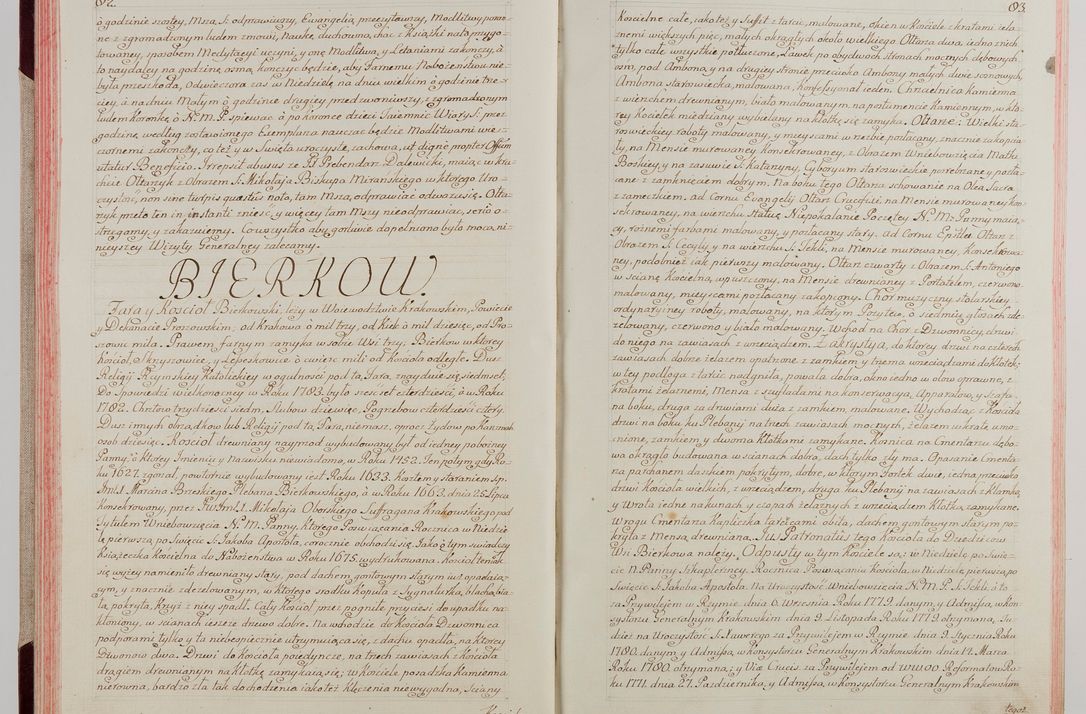 82.
o godzinie szostey, Msza S: odprawiwszy, Ewangelią przeczytawszy, Modlitwy poran-
ne z zgromadzonym ludem zmowi, Nauke duchowną choć z Książki na to przygo-
towaney, sposobem Medytacyi uczyni, y onę Modlitwą, y Letaniami zakończy, a
to naydaley na godzinę osmą kończyć będzie, aby Farnemu Nabożeństwu nie-
była przeszkodą, Odwieczora zas w Niedzielę na dniu wielkim o godzinie trze-
ciey, a na dniu Małym o godzinie drugiey przed zwoniwszy, z zgromadzonym
ludem Koronkę o N: M: P. spiewać a po koronce dzieci Taiemnic Wiary S: przez
godzinę, według zostawionego Exemplarza nauczać będzie Modlitwami wie-
czornemi zakonczy, co też y w Swięta uroczyste, zachowa, ut digné propter Officium
utatur Beneficio. Irrepsit abusus ze JX Prebendarz Dalewicki, maiąc w kru-
chcie Ołtarzyk z Obrazem S. Mikołaja Biskupa Mirańskiego w którego Uro-
czystość, non sine turpis quæstus nota, tam Msza, odprawiać odważa się. Ołta-
rzyk przeto ten in instanti znieść y więcey tam Mszy nieodprawiać, serió o-
strzegamy, y zakazuiemy. Co wszystko aby gorliwie dopełniono było mocą ni-
nieyszey Wizyty Generalney zalecamy.
BIERKOW.
Fara y Kosciół Bierkowski, leży w Woiewodztwie Krakowskim, Powiecie
y Dekanacie Proszowskim; od Krakowa o mil trzy, od Kielc o mil dziesięć, od Pro-
szowic mila. Prawem farnym zamyka w sobie Wsi trzy: Bierkow w ktorey
Kościoł, Skrzyszowice, y Lepeskowice o cwierć mili od Kościoła odległe. Dusz
Religii Rzymskiey Katolickiey w ogulności pod tą Farą, znayduie się siedmset;
Do Spowiedzi wielkonocney w Roku 1783. było sześćset czterdzieści, a w Roku
1782. Chrztow trzydzieści siedm, Slubow dziewięć, Pogrzebow czterdzieści cztery.
Dusz innych obrządkow lub Religij pod tą Farą, niemasz, oprocz żydow po Karczmach
osob dziesięć. Kościoł drewniany naypierwod wybudowany był od iedney pobożney
Panny, o ktorey Imieniu y nazwisku niewiadomo, w Roku 1452. Ten potym gdy Ro-
ku 1627. zgorzał, powtornie wybudowany iest Roku 1633. Kosztem y staraniem sp.
Jmć X. Marcina Brzeskiego Plebana Bierkowskiego, a w Roku 1663. dnia 25. Lipca
Konsekrowany, przez JW. Jmć X. Mikołaja Oborskiego Suffragana Krakowskiego pod
Tytułem Wniebowzięcia N. M. Panny, ktorego Poswięcania Rocznica w Niedzie-
lę pierwszą po Swięcie S. Jakoba Apostoła, corocznie obchodzi się. Jako o tym swiadczy
Ksiązeczka Koscielna do Nabożeństwa w Roku 1675. wydrukowana. Kościoł ten iak
się wyżey namieniło drewniany stary, pod dachem gontowym starym iuż opadaią-
cym, y znacznie zdezelowanym, w ktorego srodku Kopuła z Sygnaturką, blachą bia-
łą, pokryta, Krzyż z niey spadł. Cały Kościoł przez pogniłe przyciesi do upadku na-
kłoniony, w scianach ieszcze drzewo dobre. Na wchodzie do Kościoła Dzwonnica
podporami tylko y ta niebespiecznie utrzymuiąca się, z dachu opadła, na ktorey
Dzwonow dwa. Drzwi do Kościoła poiedyncze, na trzech zawiasach z Kościoła
drągiem drewnianym na kłotkę zamykaią się; w Kościele posadzka kamienna
nierowna, bardzo zła tak do chodzenia iako też klęczenia niewygodna, Sciany
83
Koscielne całe, iako też y Sufit z tarcic, malowane, okien w Kościele z kratami żela-
znemi większych pięć, małych okrągłych około wielkiego Ołtarza dwa, iedno z nich
tylko całe wszystkie potłuczone, Ławek po obydwoch stronach mocnych, dębowych
osm, pod Amboną, y na drugiey stronie przeciwko Ambony małych dwie, sosnowych,
Ambona staroswiecka, malowana, Konfesyonał ieden. Chrzcielnica kamienna
z wierzchem drewnianym, biało malowanym, na postumencie Kamiennym, w kto-
rey Kociełek miedziany wybielany na kłotkę się zamyka. Ołtarze: Wielki sta-
roswieckiey roboty malowany, y mieyscami w rzeźbie pozłacany, znacznie zakopcia-
ły, na Mensie murowaney Konsekrowaney, z Obrazem Wniebowzięcia Matki
Boskiey, y na zasuwie S. Katarzyny, Cyboryum staroswieckie porzebrane y pozła-
cane z zamknięciem dobrym. Na boku tego Ołtarza schowanie na Olea Sacra
z zameczkiem, ad Cornu Evangelij Ołtarz Crucifixi na Mensie murowaney kon-
sekrowaney, na wierzchu Statuę Niepokalanie Poczętey N: M: Panny maią-
cy, roznemi farbami malowany, y pozłacany stary. ad Cornu Epistolæ Ołtarz z
Obrazem S. Cecylij y na wierzchu S. Tekli, na Mensie murowaney, Konsekrowa-
ney, podobnież iak pierwszy malowany. Ołtarz czwarty z Obrazem S. Antoniego
w ścianę Kościelną, wpuszczony, na Mensie drewnianey z Portatelem, czerwono
malowany, mieyscami pozłacany zakopcony. Chor muzyczny stolarskiey
ordynaryiney roboty, malowany, na ktorym Pozytyw, o siedmiu głosach zde-
zelowany, czerwono y biało malowany. Wchod na Chor z Dzwonnicy, drzwi
do niego na zawiasach z wrzeciądzem. Zakrystya, do ktorey drzwi na czterech
zawiasach dobrze żelazem opatrzone z zamkiem y trzema wrzeciądzami do kłotek;
w tey podłoga z tarcic nadgniła, powała dobra, okno iedno w ołow oprawne, z
kratami żelaznemi, Mensa z szufladami na konserwacyą, Apparatow, y szafa
na boku, druga za drzwiami duża z zamkiem, malowane. Wychodząc z Kościoła
drzwi na boku ku Plebanij na trzech zawiasach mocnych, żelazem w kratę umo-
cnione, zamkiem y dwoma kłotkami zamykane. Kosnica na Cmentarzu dębo-
wa okrągło budowana w scianach dobra, dach tylko zły ma. Opasanie Cmenta-
rza parkanem daszkiem pokrytym, dobre, w ktorym Fortek dwie, iedna przeciwko
drzwi Kościoła wielkich, z wrzeciądzem, druga ku Plebanij na zawiasach z klamką,
y Wrota iedne na kunach y czopach żelaznych z wrzeciądzem Kłotką zamykane.
W rogu Cmentarza Kapliczka tarcicami obita, dachem gontowym starym po-
kryta z Mensą drewnianą. Jus Patronatûs tego Kościoła do Dziedzicow
Wsi Bierkowa należy. Odpusty w tym Kościele są; w Niedzielę po Swię-
cie N. Panny Szkaplerzney. Rocznica Poswiącania Kościoła, w Niedzielę pierwszą po
Swięcie S. Jakuba Apostoła. Na Uroczystość Wniebowzięcia N. M. P. S. Tekli a to
za Przywileiem w Rzymie dnia 6. Wrzesnia Roku 1779. danym, y Admissą w Kon-
systorzu Generalnym Krakowskim dnia 9. Listopada Roku 1779. otrzymaną, Tu-
dzież na Uroczystość S. Xawerego za Przywileiem w Rzymie dnia 9. Stycznia Roku
1780. danym, y Admissą w Konsystorzu Generalnym Krakowskim dnia 14. Marca
Roku 1780. otrzymaną; y Viæ Crucis za Przywileiem od WWOO. Reformatow Ro-
ku 1771. dnia 27. Pazdziernika, y Admissą, w Konsystorzu Generalnym Krakowskim
tegoż